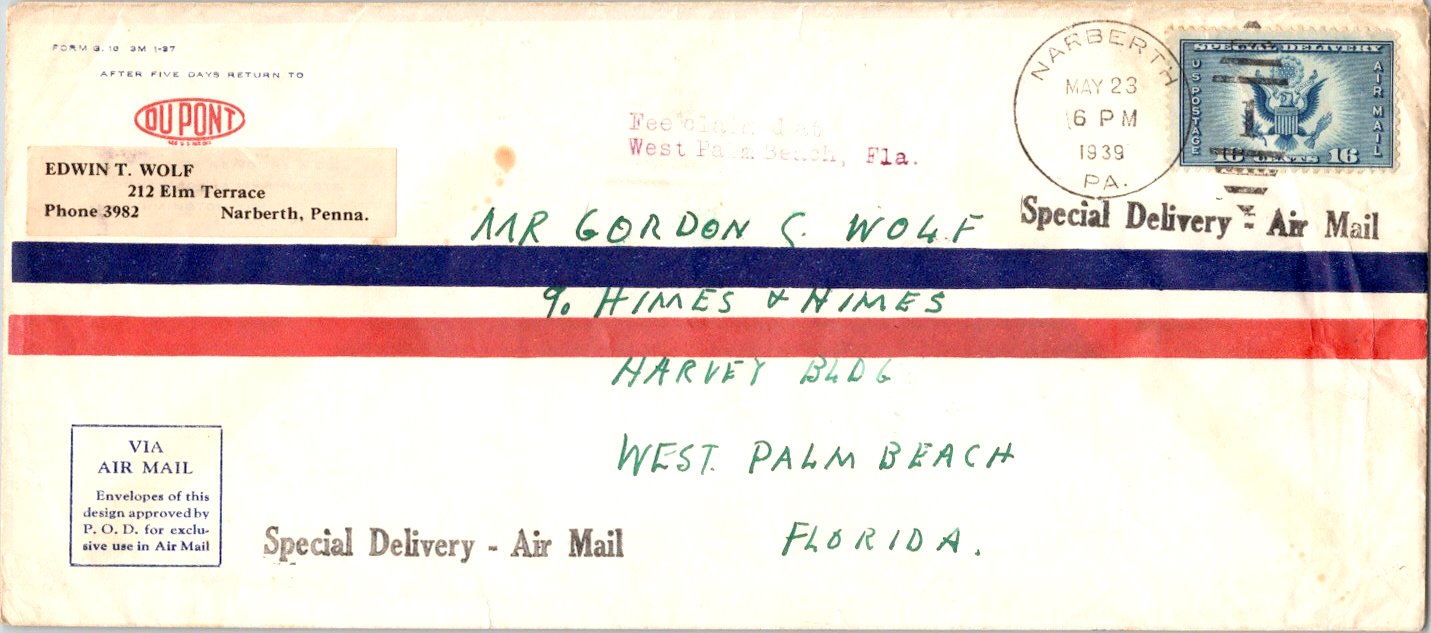 FORM G. 10 3M 1-37
AFTER FIVE DAYS RETURN TO
DU PONT
EDWIN T. WOLF
212 Elm Terrace
Phone 3982 Narberth, Penna.
Fee claimed at
West Palm Beach, Fla.
NARBERTH
MAY 23
6 PM
1939
PA.
SPECIAL DELIVERY
US POSTAGE
AIR MAIL
1
16 CENTS 16
Special Delivery - Air Mail
MR GORDON S. WOLF
% HIMES & HIMES
HARVEY BLDG
WEST. PALM BEACH
FLORIDA.
VIA
AIR MAIL
Envelopes of this
design approved by
P. O. D. for exclu-
sive use in Air Mail
Special Delivery - Air Mail